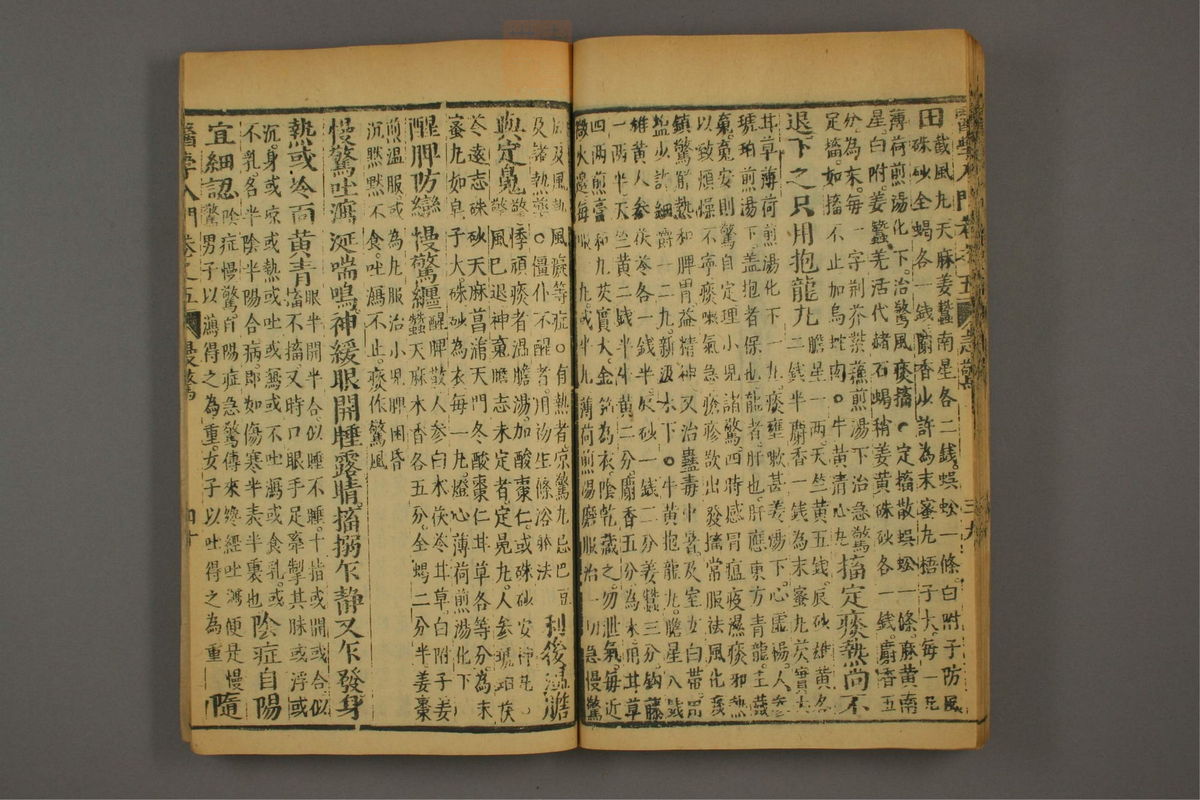 醫學入門 卷之五 急驚 三九
田
截風丸天麻姜蠶南星各二錢。蜈蚣一條白附子防風
硃砂全蝎各一錢麝香少許為末蜜丸梧子大。每一丸
薄荷煎湯化下。治驚風痰搐●定搐散蜈蚣一條。麻黃南
星。白附。姜蠶。羌活代赭石蝎稍姜黃硃砂各一錢。麝香五
分。為末。每一字荊芥紫蘇煎湯下治急驚
定搐。如搐不止加烏蛇肉○牛黃清心丸
搐定痰熱尚不
退下之只用抱龍丸
膽星一兩。天竺黃五錢。辰砂雄黃各
二錢半麝香一錢為末蜜丸芡實大
甘草薄荷煎湯化下一丸。痰壅嗽甚姜湯下。心虛惕。人參
琥珀煎湯下。蓋抱者保也。龍者。肝也。肝應東方青龍。主藏
魂。魂安則驚自定理小兒諸驚四時感冒瘟疫濕痰邪熱
以致煩燥不寧痰嗽氣急瘡疹欲出發搐常服祛風化痰
鎮驚解熱和脾胃益精神又治蠱毒中暑。及室女白帶。用
塩少許細嚼一二丸。新汲水下●牛黃抱龍丸。膽星八錢
雄黃人參茯苓各一錢半。辰砂一錢二分姜蠶三分鈎藤
一兩半天竺黃二錢半牛黃二分。麝香五分為末。用甘草
四兩煎膏和丸芡實大金箔為衣陰乾藏之勿泄氣每近
微火邊每服一丸。或半丸薄荷煎湯磨服治一切急慢驚
風及風熱風癡等症。○有熱者。涼驚丸忌巴豆
及諸熱藥○僵仆不醒者用湯生條浴躰法
利後溫膽
與定魄
驚悸頑痰者溫膽湯。加酸棗仁。或硃砂安神丸。
驚風已退神魂膽志未定者定魄丸。人參琥珀茯
苓遠志硃砂天麻菖蒲天門冬酸棗仁甘草各等分。為末
蜜丸如皂子大硃砂為衣每一丸。燈心薄荷煎湯化下
醒脾防變慢驚纏
醒脾散人參白朮茯苓甘草。白附子姜
蠶天麻木香各五分。全蝎二分半姜棗
煎温服或為丸服治小兒脾困昏
沉默默不食。吐瀉不止。痰作驚風
慢驚吐瀉涎喘鳴。神緩眼開睡露睛。搐搦乍靜又乍發。身
熱或冷面黃青
眼半開半合似睡不睡。十指或開或合。似
搐不搐又時口眼手足牽掣其脉或浮或
沉。身或凉或熱或吐或瀉或不吐瀉或食乳。或
不乳。名半陰半陽合病。即如傷寒半表半裏也
陰症自陽
宜細認
陰症慢驚。有陽症急驚傳來纔經吐瀉便是慢
驚男子以瀉得之為重。女子以吐得之為重
隨
醫學入門 卷之五 慢驚 四十